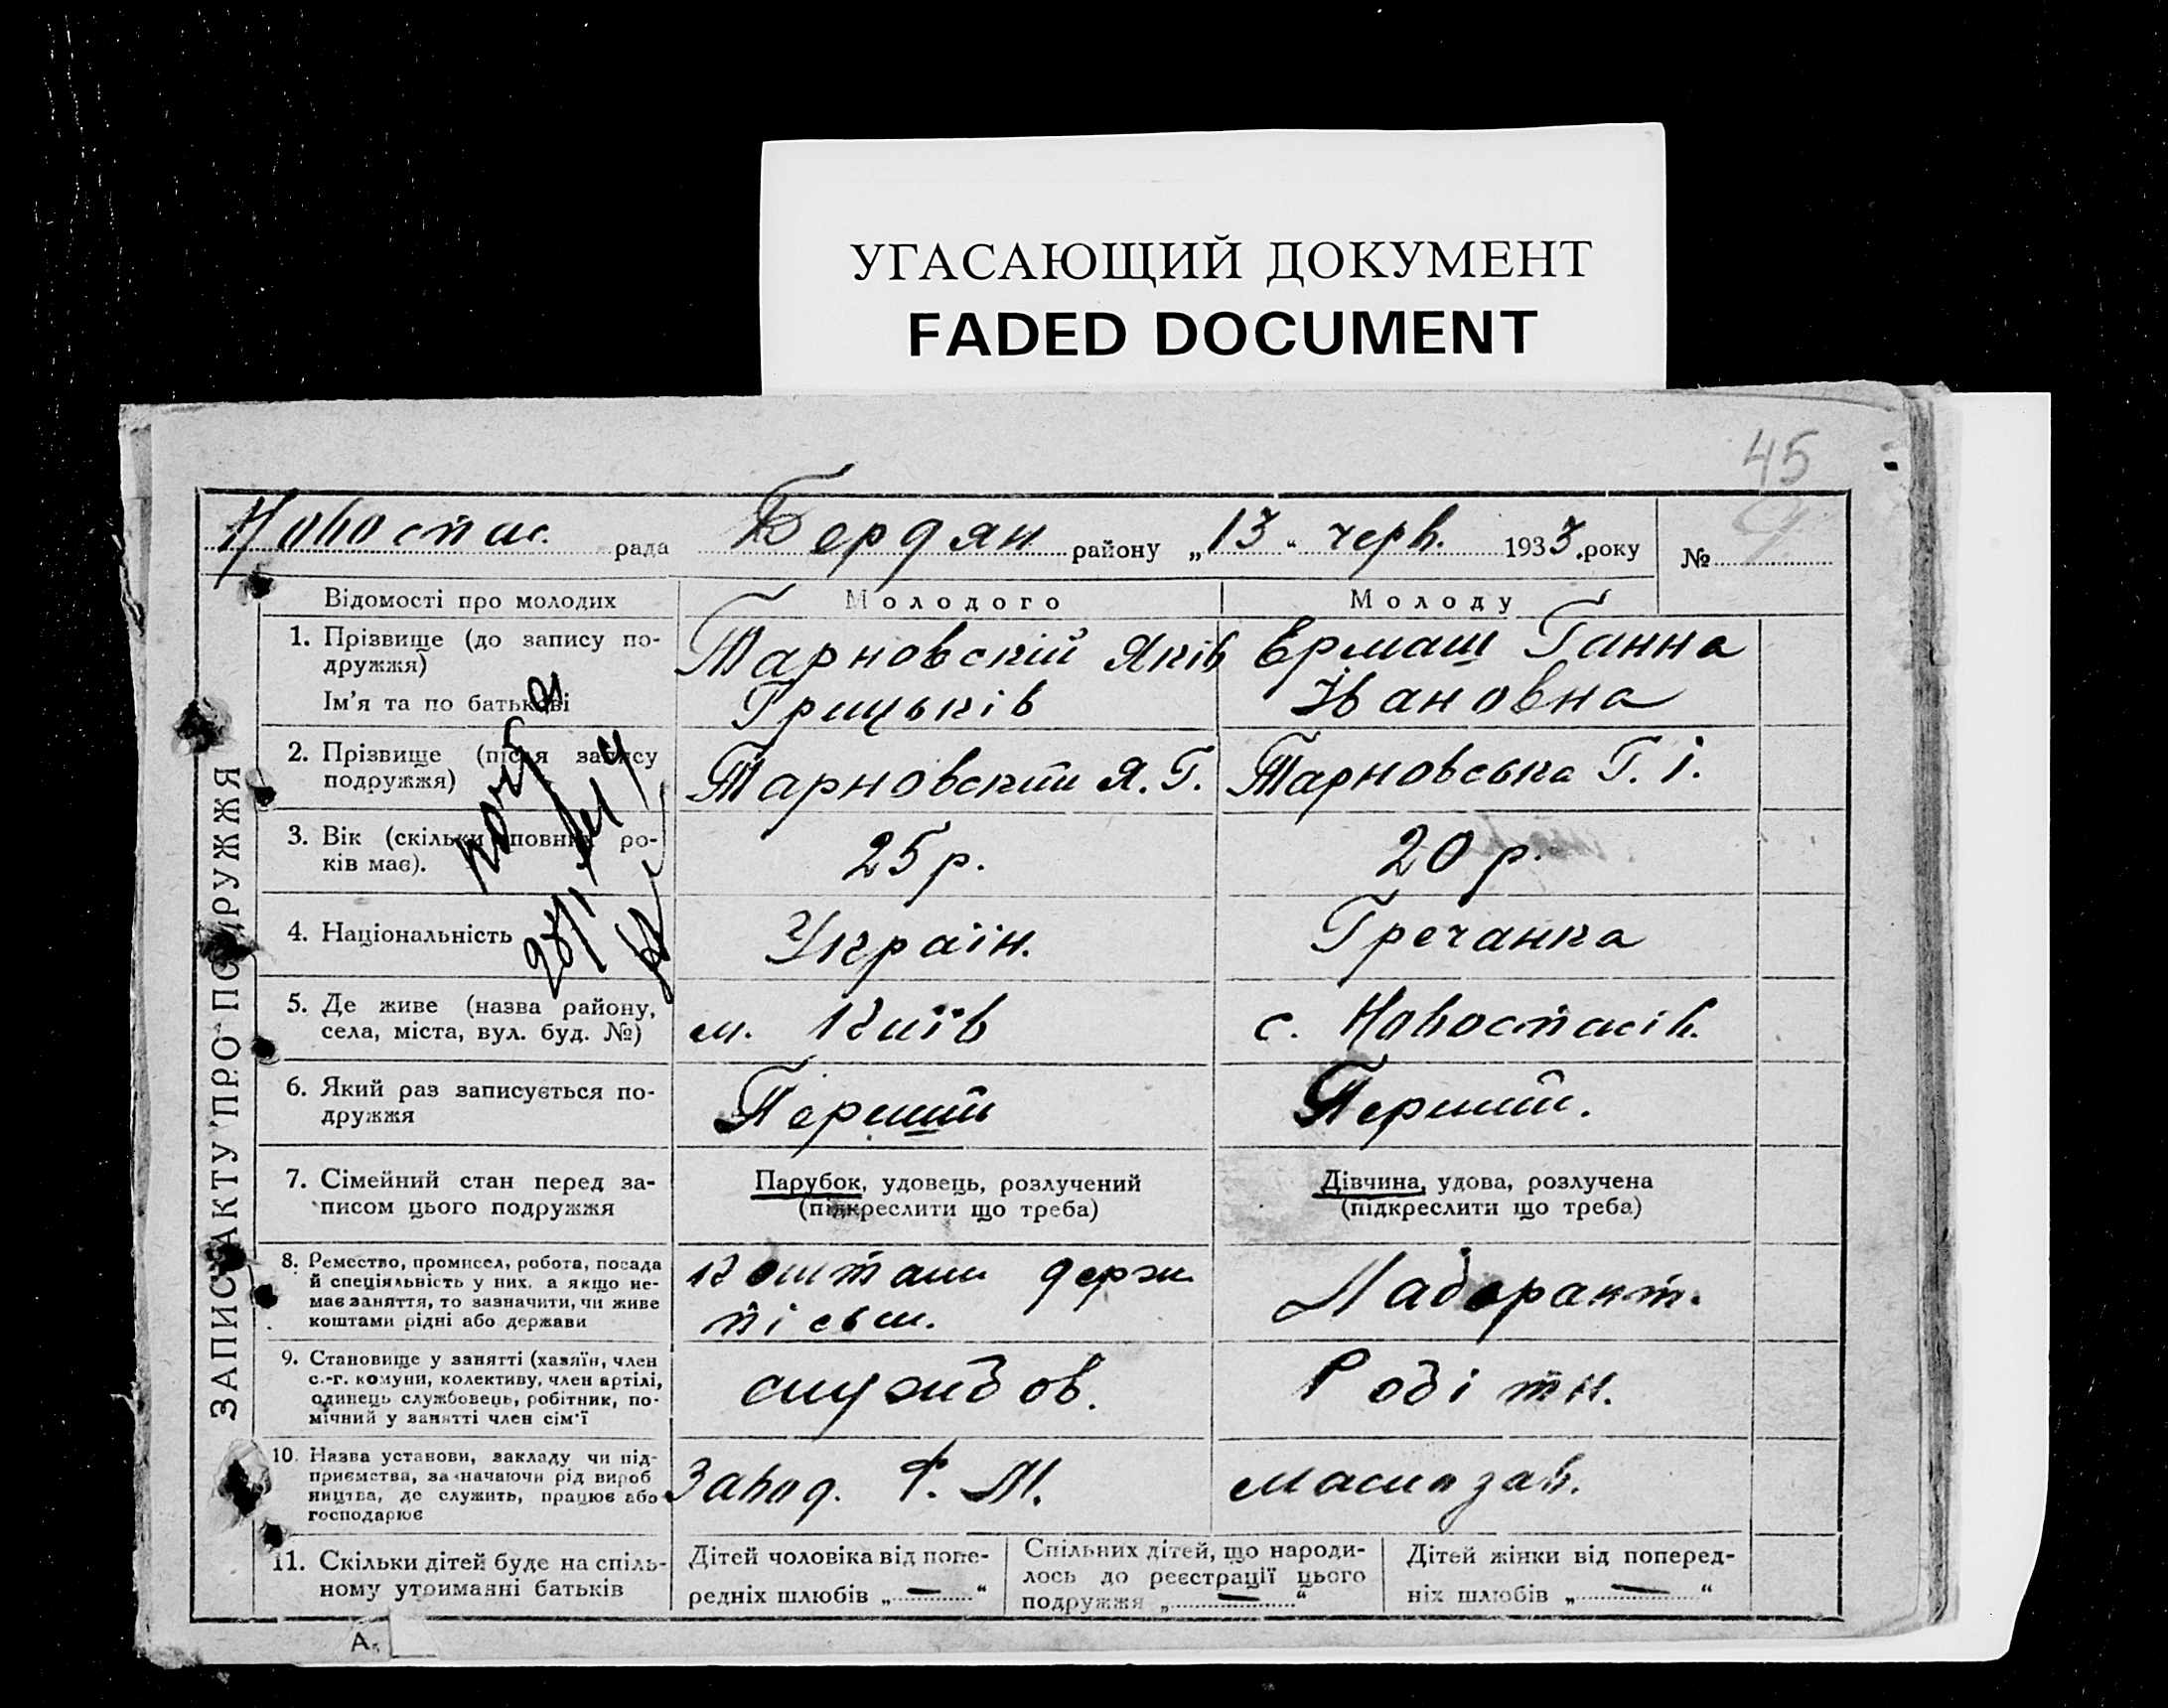 УГАСАЮЩИЙ ДОКУМЕНТ
FADED DOCUMENT
45
Новоспас. рада Бердян району „13“ черв. 1933 .року № 9
ЗАПИС АКТУ ПРО ПОДРУЖЖЯ
Відомості про молодих Молодого Молоду
1. Прізвище (до запису по-
дружжя)
Ім'я та по батькові
Тарновский Яків
Грицьків
Ермаш Ганна
Івановна
2. Прізвище (після запису
подружжя)
Тарновский Я. Г.
Тарновська Г. І.
3. Вік (скільки повних ро-
ків має).
25 р.
20 р.
4. Національність
Україн.
Гречанка
5. Де живе (назва району,
села, міста, вул. буд. №)
м. Київ
с. Новоспасів.
6. Який раз записується по-
дружжя
Перший
Перший.
7. Сімейний стан перед за-
писом цього подружжя
Парубок, удовець, розлучений
(підкреслити що треба)
Дівчина, удова, розлучена
(підкреслити що треба)
8. Ремество, промисел, робота, посада
й спеціяльність у них, а якщо не-
має заняття, то зазначити, чи живе
коштами рідні або держави
коштами держ
Лаборант.
9. Становище у занятті (хазяїн, член
с.-г. комуни, колективу, член артілі,
одинець службовець, робітник, по-
мічний у занятті член сім'ї
службов.
Робітн.
10. Назва установи, закладу чи під-
приємства, зазначаючи рід вироб
ництва, де служить, працює або
господарює
Завод. Ф. М.
маслозав.
11. Скільки дітей буде на спіль-
ному утриманні батьків
Дітей чоловіка від попе-
редніх шлюбів „—“
Спільних дітей, що народи-
лось до реєстрації цього
подружжя „—“
Дітей жінки від поперед-
ніх шлюбів „—“
А.